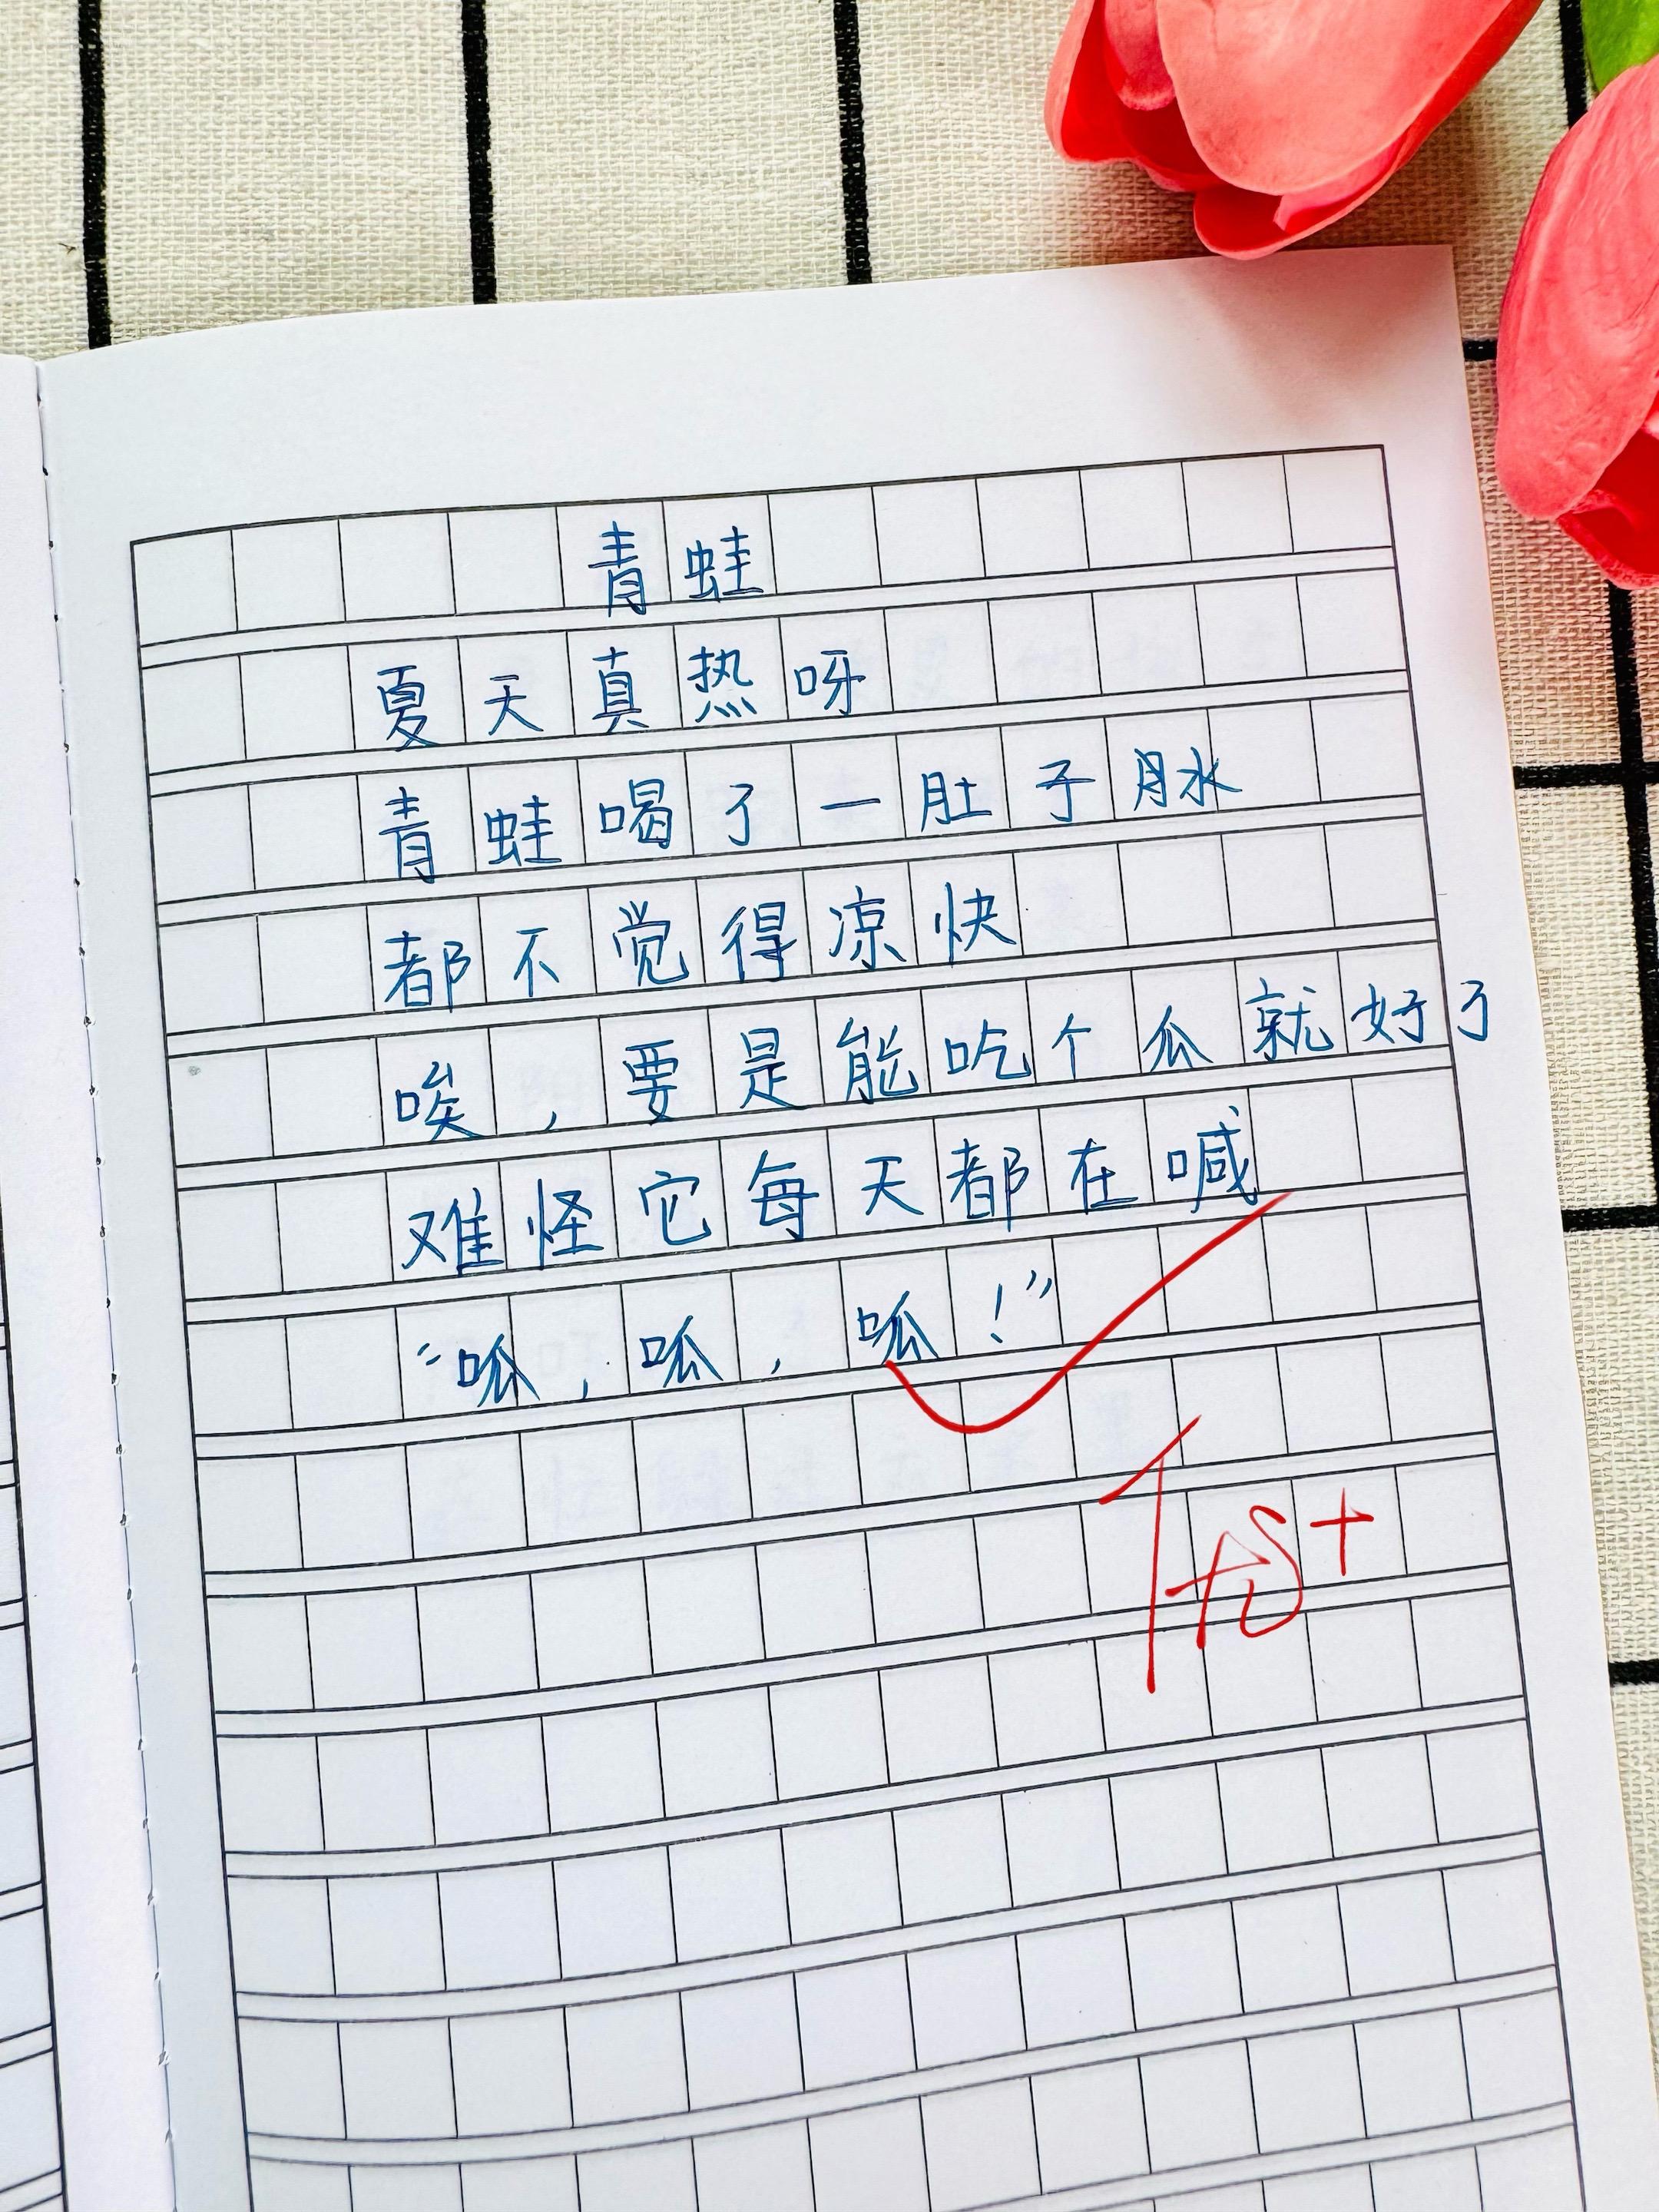 青蛙
夏天真热呀
青蛙喝了一肚子月水
都不觉得凉快
唉，要是能吃个瓜就好了
难怪它每天都在喊
“呱，呱，呱！”
优+